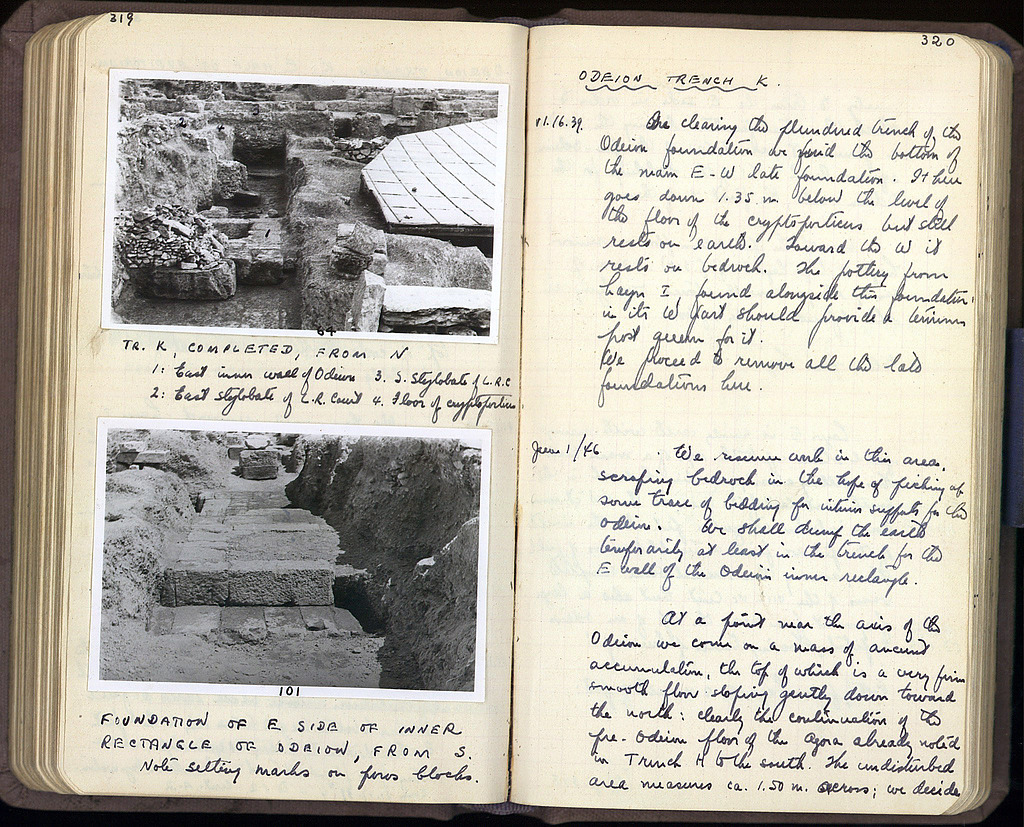 319
64
TR. K, COMPLETED, FROM N
1: East inner wall of Odeion 3. S. Stylobate of L.R.C
2: East stylobate of L.R. Court 4. Floor of cryptoporticus
101
FOUNDATION OF E SIDE OF INNER
RECTANGLE OF ODEION, FROM S.
Note setting marks on poros blocks.
320
ODEION TRENCH K.
In clearing the plundered trench of the
Odeion foundation we find the bottom of
the main E-W late foundation. It here
goes down 1.35 m below the level of
the floor of the cryptoporticus but still
rests on earth. Toward the W it
rests on bedrock. The pottery from
Layer I, found alongside this foundation
in its W part should provide a terminus
post quem for it.
We proceed to remove all the late
foundations here.
June 1/46 We resume work in this area,
scraping bedrock in the hope of picking up
some trace of bedding for interior supports for the
Odeion. We shall dump the earth
temporarily at least in the trench for the
E wall of the Odeion's inner rectangle.
At a point near the axis of the
Odeion we come on a mass of ancient
accumulation, the top of which is a very firm
smooth floor sloping gently down toward
the north: clearly the continuation of the
pre-Odeion floor of the Agora already noted
in Trench H to the south. The undisturbed
area measures ca. 1.50 m. across; we decide